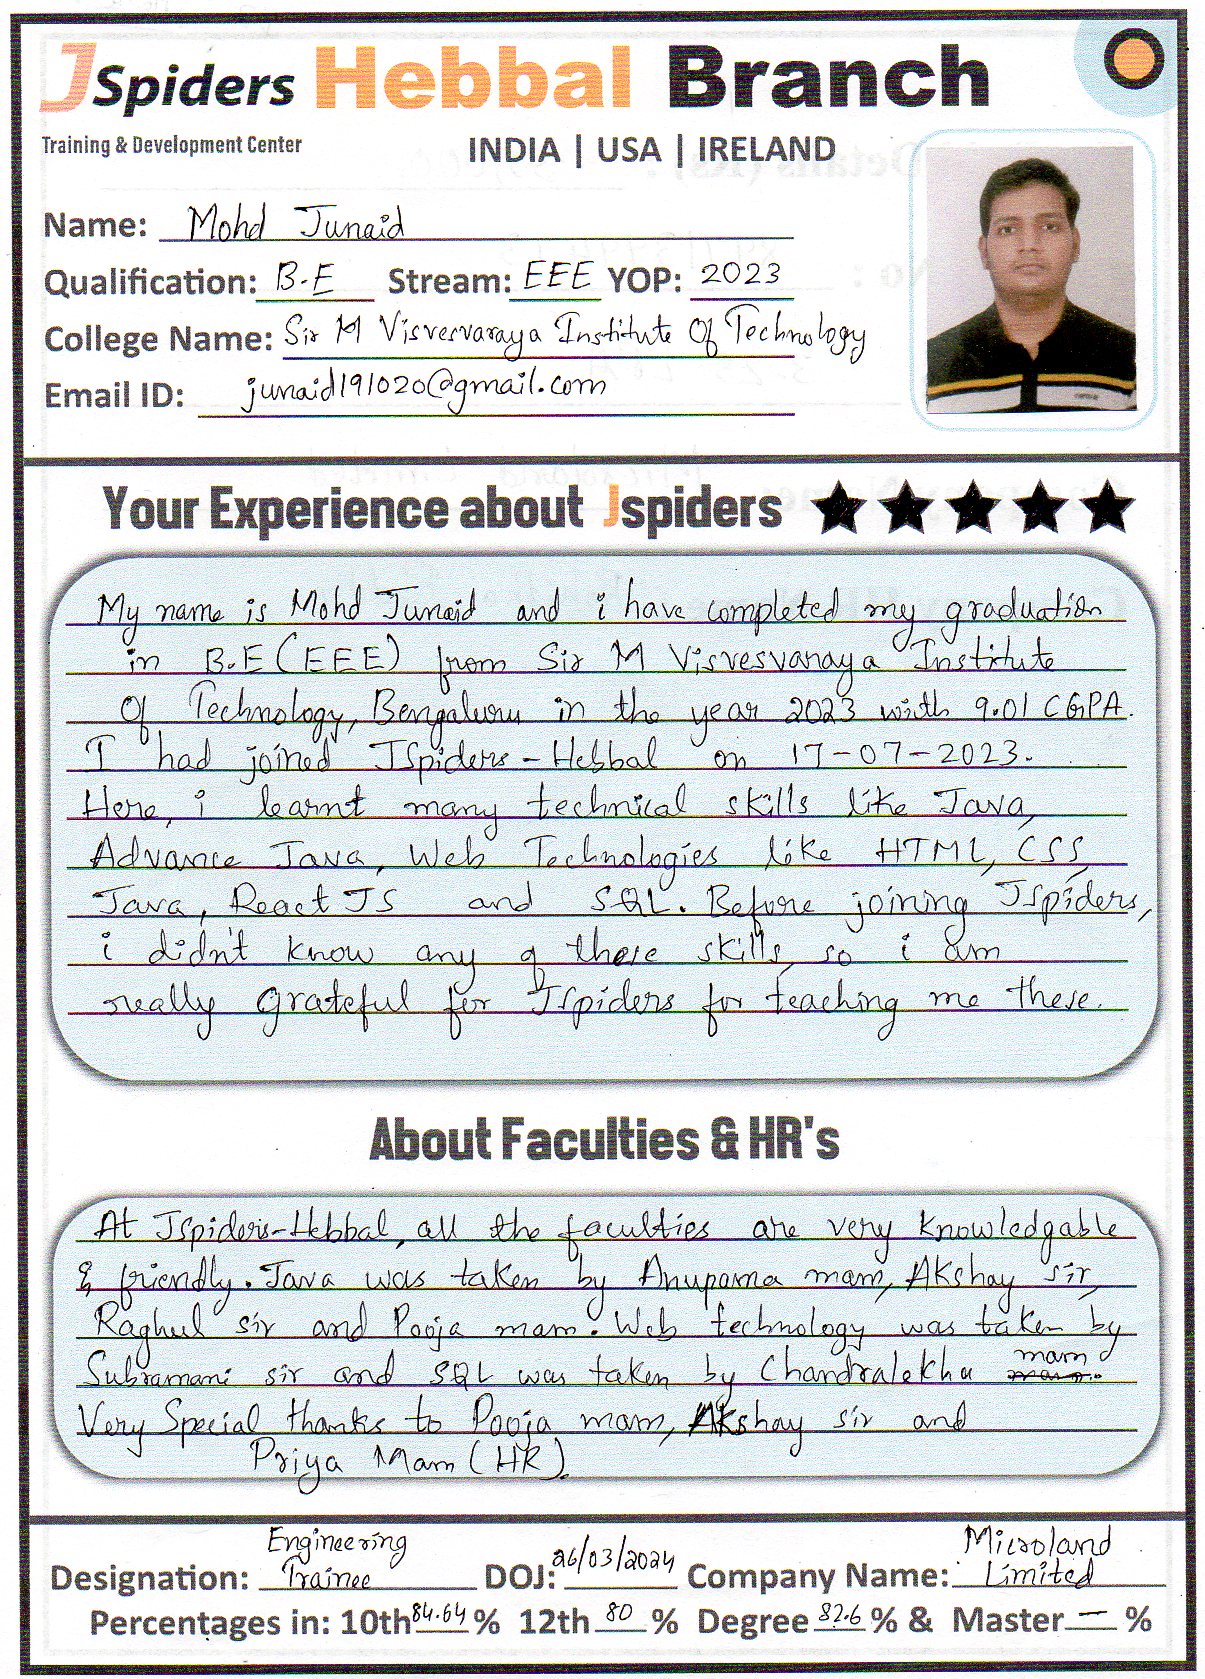 JSpiders Hebbal Branch
Training & Development Center
INDIA | USA | IRELAND
Name: Mohd Junaid
Qualification: B.E Stream: EEE YOP: 2023
College Name: Sir M Visvesvaraya Institute Of Technology
Email ID: junaid191020@gmail.com
Your Experience about Jspiders ★★★★★
My name is Mohd Junaid and i have completed my graduation
in B.E (EEE) from Sir M Visvesvaraya Institute
Of Technology, Bengaluru in the year 2023 with 9.01 CGPA.
I had joined JSpiders - Hebbal on 17-07-2023.
Here, i learnt many technical skills like Java,
Advance Java, Web Technologies like HTML, CSS,
Java, React JS and SQL. Before joining JSpiders,
i didn't know any of these skills, so i am
really grateful for JSpiders for teaching me these.
About Faculties & HR's
At JSpiders-Hebbal, all the faculties are very knowledgable
& friendly. Java was taken by Anupama mam, Akshay sir,
Raghul sir and Pooja mam. Web technology was taken by
Subramani sir and SQL was taken by Chandralekha mam
Very Special thanks to Pooja mam, Akshay sir and
Priya Mam (HR).
Designation: Engineering Trainee DOJ: 26/03/2024 Company Name: Microland Limited
Percentages in: 10th 84.64 % 12th 80 % Degree 82.6 % & Master — %